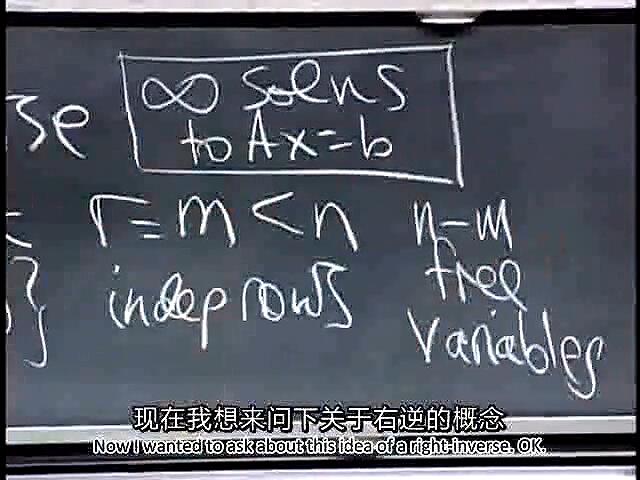 ∞ solns
se to Ax=b
r=m<n n-m
indep rows free
} variables
现在我想来问下关于右逆的概念
Now I wanted to ask about this idea of a right-inverse. OK.